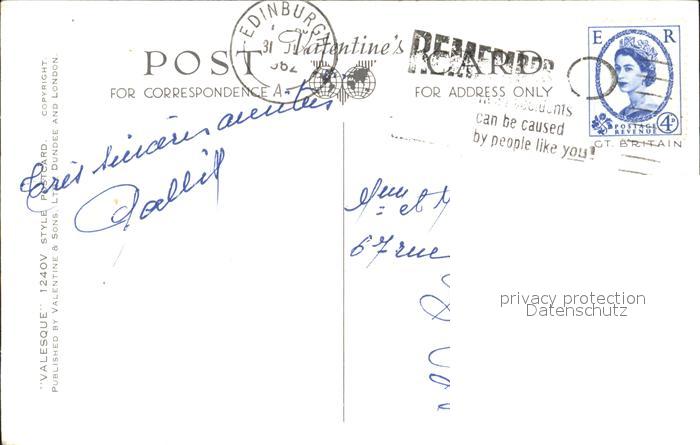 EDINBURGH
31
962
Valentine's
POST CARD
REMEMBER
FOR CORRESPONDENCE
FOR ADDRESS ONLY
accidents
can be caused
by people like you!
E R
POSTAGE
REVENUE
4D
GT. BRITAIN
"VALESQUE" 1240V STYLE POSTCARD. COPYRIGHT.
PUBLISHED BY VALENTINE & SONS, LTD. DUNDEE AND LONDON.
Très sincères amitiés
Mme et M
67 rue
privacy protection
Datenschutz